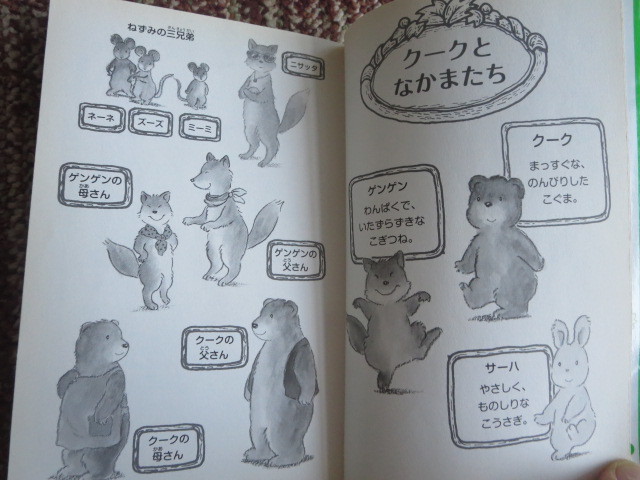 クークと
なかまたち
クーク
まっすぐな、
のんびりした
こぐま。
ゲンゲン
わんぱくで、
いたずらずきな
こぎつね。
サーハ
やさしく、
ものしりな
こうさぎ。
ねずみの三兄弟
ネーネ
ズーズ
ミーミ
ニサッタ
ゲンゲンの
母さん
ゲンゲンの
父さん
クークの
父さん
クークの
母さん